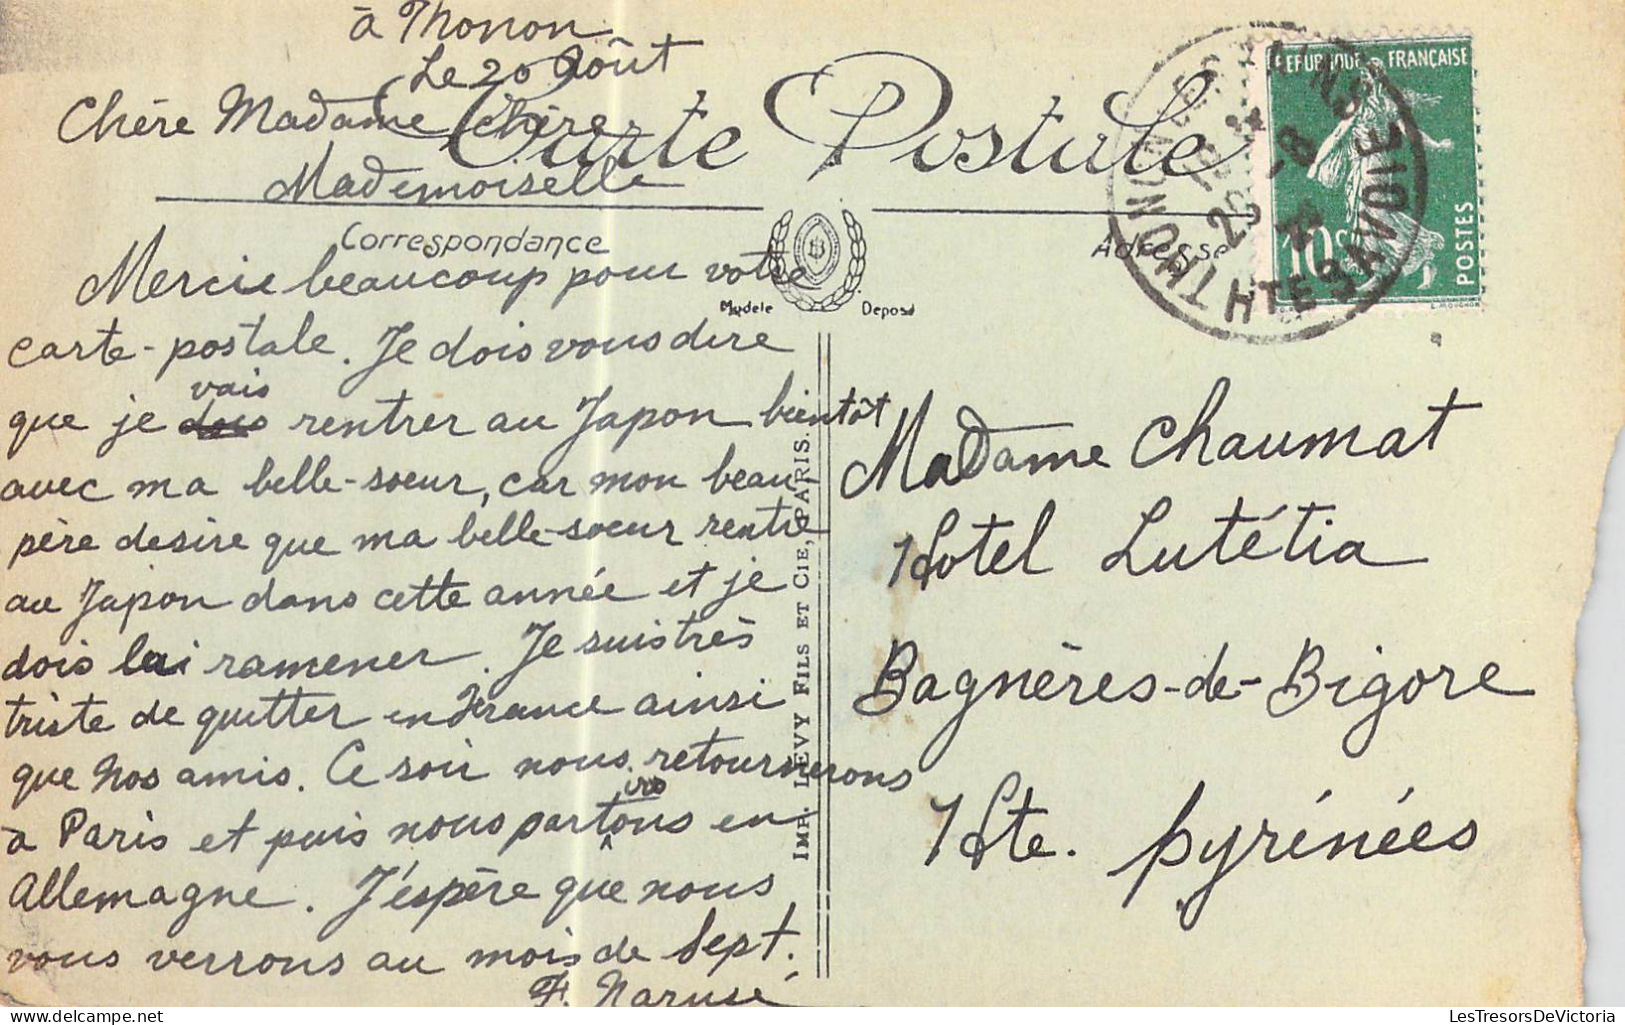 à Thonon
Le 20 Août
Chère Madame chère
Mademoiselle
Carte Postale
Correspondance
Adresse
Modèle Déposé
Mercie beaucoup pour votre
carte-postale. Je dois vous dire
que je dois vais rentrer au Japon bientôt
avec ma belle-soeur, car mon beau
père desire que ma belle-soeur rentre
au Japon dans cette année et je
dois lui ramener. Je suis très
triste de quitter en France ainsi
que nos amis. Ce soir nous retournerons
à Paris et puis nous partirons en
Allemagne. J'éspère que nous
vous verrons au mois de Sept.
F. Narusé
IMP. LEVY FILS ET CIE, PARIS.
REPUBLIQUE FRANÇAISE
10c
POSTES
THONON-LES-BAINS
20 -8
HTE SAVOIE
Madame Chaumat
Hotel Lutétia
Bagnères-de-Bigore
Hte. Pyrénées
LesTresorsDeVictoria